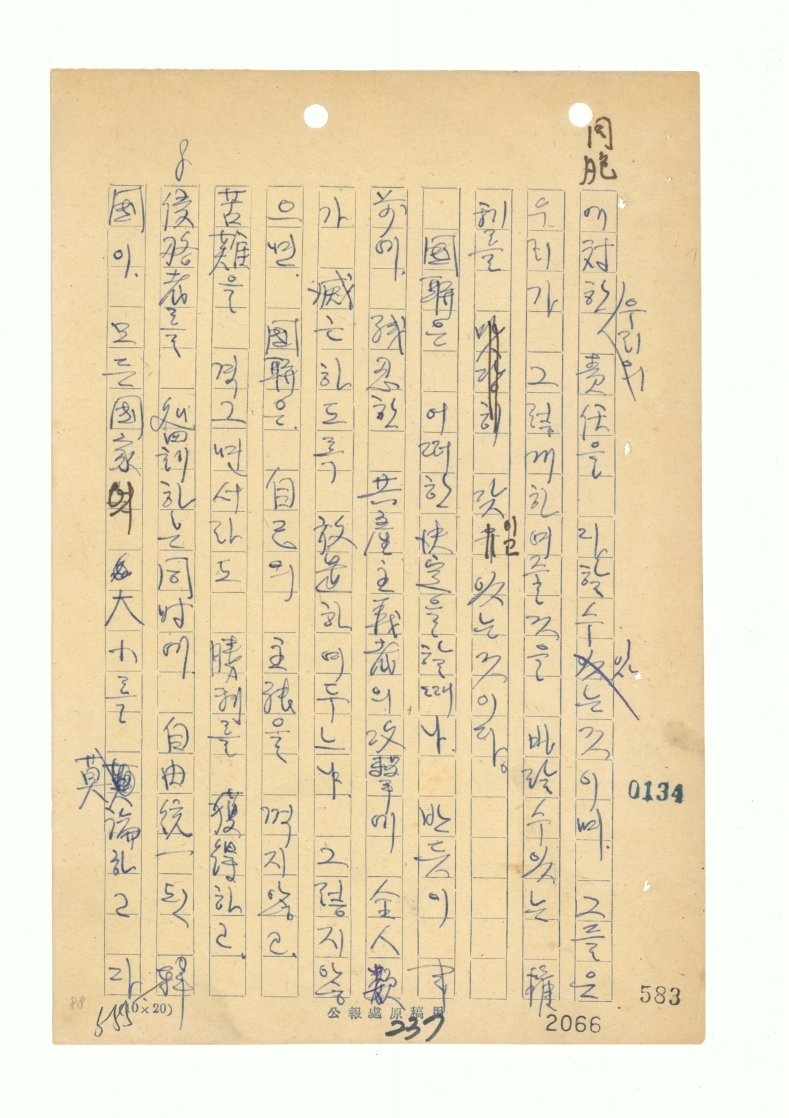 同胞에 對한 우리의 責任을 다할수 있는것이며. 그들은
우리가 그렇게하여줄것을 바랄수있는 權
利를 갖이고있는것이다.
國聯은 어떠한 決定을할때나. 반듯이 事
前에. 殘忍한 共産主義者의 攻擊에 全人類
가 滅亡하도록 放置하여두느냐. 그렇지않
으면. 國聯은. 自己의 主張을 꺽지않고.
苦難을 격그면서라도 勝利를 獲得하고.
侵略者를 處罰하는同時에. 自由統一된 韓
國이. 모든國家의 大小를 莫論하고 각
0134
583
2066
公報處原稿用
237
(16×20)
555
88